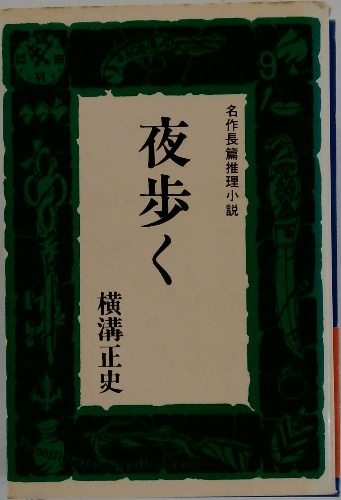 名作長篇推理小説
夜歩く
横溝正史